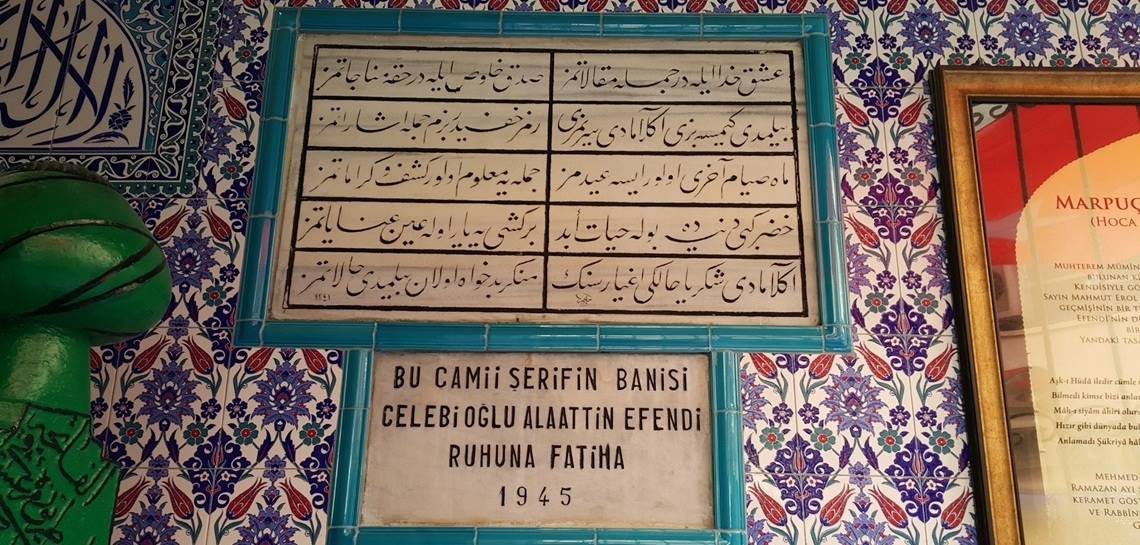 عشق خدا ایله در جمله مقالاتمز صدق خلوص ایله در حقه مناجاتمز
بیلمدی کیمسه بزی اکلامادی سیرمزی رمز خفیدر بزم جمله اشاراتمز
ماه صیام آخری اولور ایسه عیدمز جمله یه معلوم اولور کشف و کراماتمز
خضر کبی دنیده بوله حیات أبد بر کشی یه یار اوله عین عنایاتمز
اکلامادی شکریا حالکی اغیار سنك منکر بدخواه اولان بیلمدی حالاتمز
١٢٤١
BU CAMİİ ŞERİFİN BANİSİ
ÇELEBİOĞLU ALAATTİN EFENDİ
RUHUNA FATİHA
1945
MARPUÇ
(HOCA
MUHTEREM MÜMİN
BULUNAN
KENDİSİYLE GÖ
SAYIN MAHMUT EROL
GEÇMİŞİNİN BİR
EFENDİ'NİN
BİR
YANDAKİ TASA
Aşk-ı Hüdâ iledir cümle
Bilmedi kimse bizi anla
Mâh-ı sıyâm âhiri olur
Hızır gibi dünyada bul
Anlamadı Şükriyâ hâl
MEHMED
RAMAZAN AYI
KERAMET GÖST
VE RABBİN